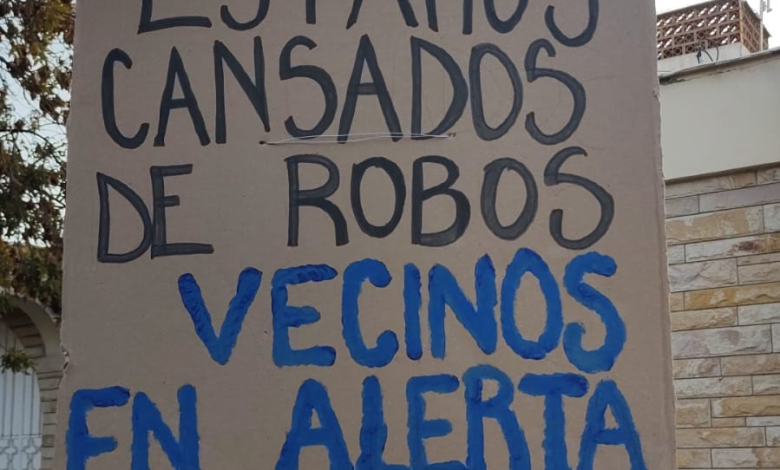 ESTAMOS
CANSADOS
DE ROBOS
VECINOS
EN ALERTA